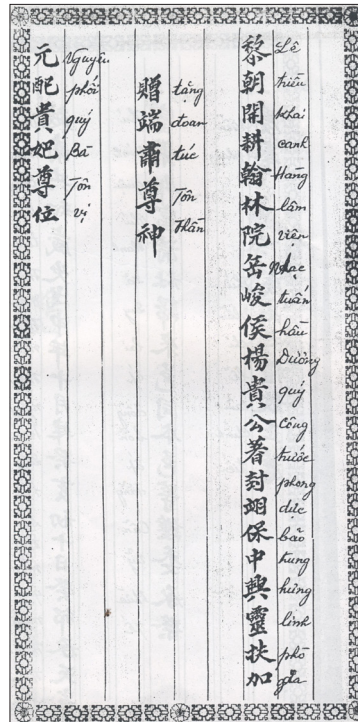 黎朝開耕翰林院岳峻侯楊貴公著封翊保中興靈扶加
Lê triều khai canh Hàng lâm viên Nhạc tuấn hầu Dương quý Công trước phong dực bảo trung hưng linh phò gia
贈端肅尊神
tặng đoan túc Tôn Thần
元配貴妃尊位
Nguyên phối quý Bà Tôn vị